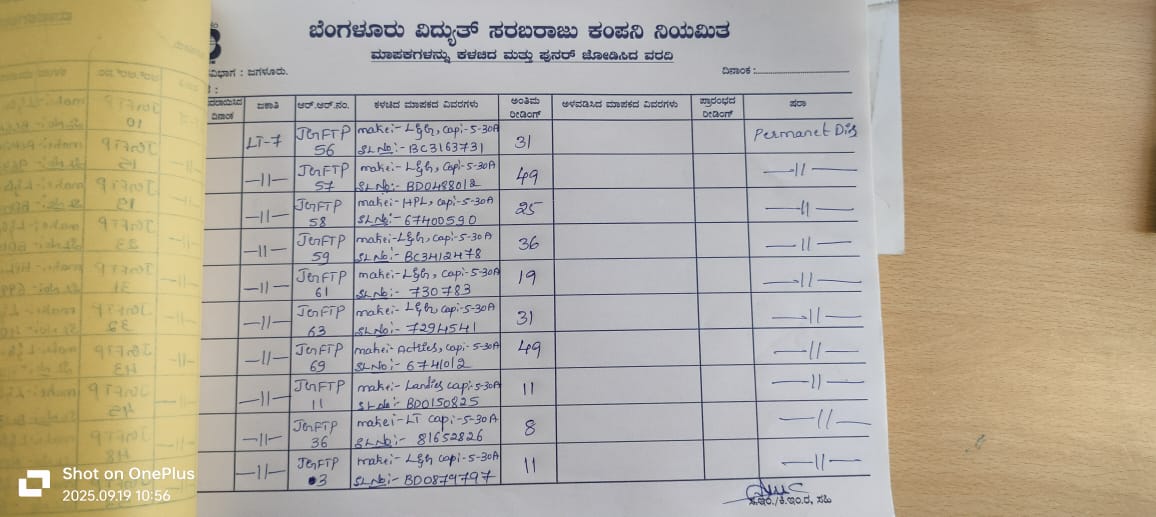 ಬೆಂಗಳೂರು ವಿದ್ಯುತ್ ಸರಬರಾಜು ಕಂಪನಿ ನಿಯಮಿತ
ಮಾಪಕಗಳನ್ನು ಕಳಚಿದ ಮತ್ತು ಪುನರ್ ಜೋಡಿಸಿದ ವರದಿ
ವಿಭಾಗ : ಜಗಳೂರು. ದಿನಾಂಕ :
ದಿನಾಂಕ ಜಕಾತಿ ಆರ್.ಆರ್.ನಂ. ಕಳಚಿದ ಮಾಪಕದ ವಿವರಗಳು ಅಂತಿಮ ರೀಡಿಂಗ್ ಅಳವಡಿಸಿದ ಮಾಪಕದ ವಿವರಗಳು ಪ್ರಾರಂಭದ ರೀಡಿಂಗ್ ಷರಾ
LT-7 JGFTP 56 make:- L&G, cap:-5-30A SL No:- BC3163731 31 Permanet Dis
—11— JGFTP 57 make:- L&G, cap:-5-30A SL No:- BD0488012 49 —11—
—11— JGFTP 58 make:- HPL, cap:-5-30A SL No:- 67400590 25 —11—
—11— JGFTP 59 make:- L&G, cap:-5-30A SL No:- BC3412478 36 —11—
—11— JGFTP 61 make:- L&G, cap:-5-30A SL No:- 730783 19 —11—
—11— JGFTP 63 make:- L&G, cap:-5-30A SL No:- 7294541 31 —11—
—11— JGFTP 69 make:- cap:-5-30A SL No:- 6741012 49 —11—
—11— JGFTP 11 make:- Landis cap:-5-30A SL No:- BD0150825 11 —11—
—11— JGFTP 36 make:- LT cap:-5-30A SL No:- 81652826 8 —11—
—11— JGFTP 3 make:- L&G cap:-5-30A SL No:- BD0879797 11 —11—
ಸ.ಇಂ./ಕಿ.ಇಂ.ರ, ಸಹಿ
Shot on OnePlus
2025.09.19 10:56